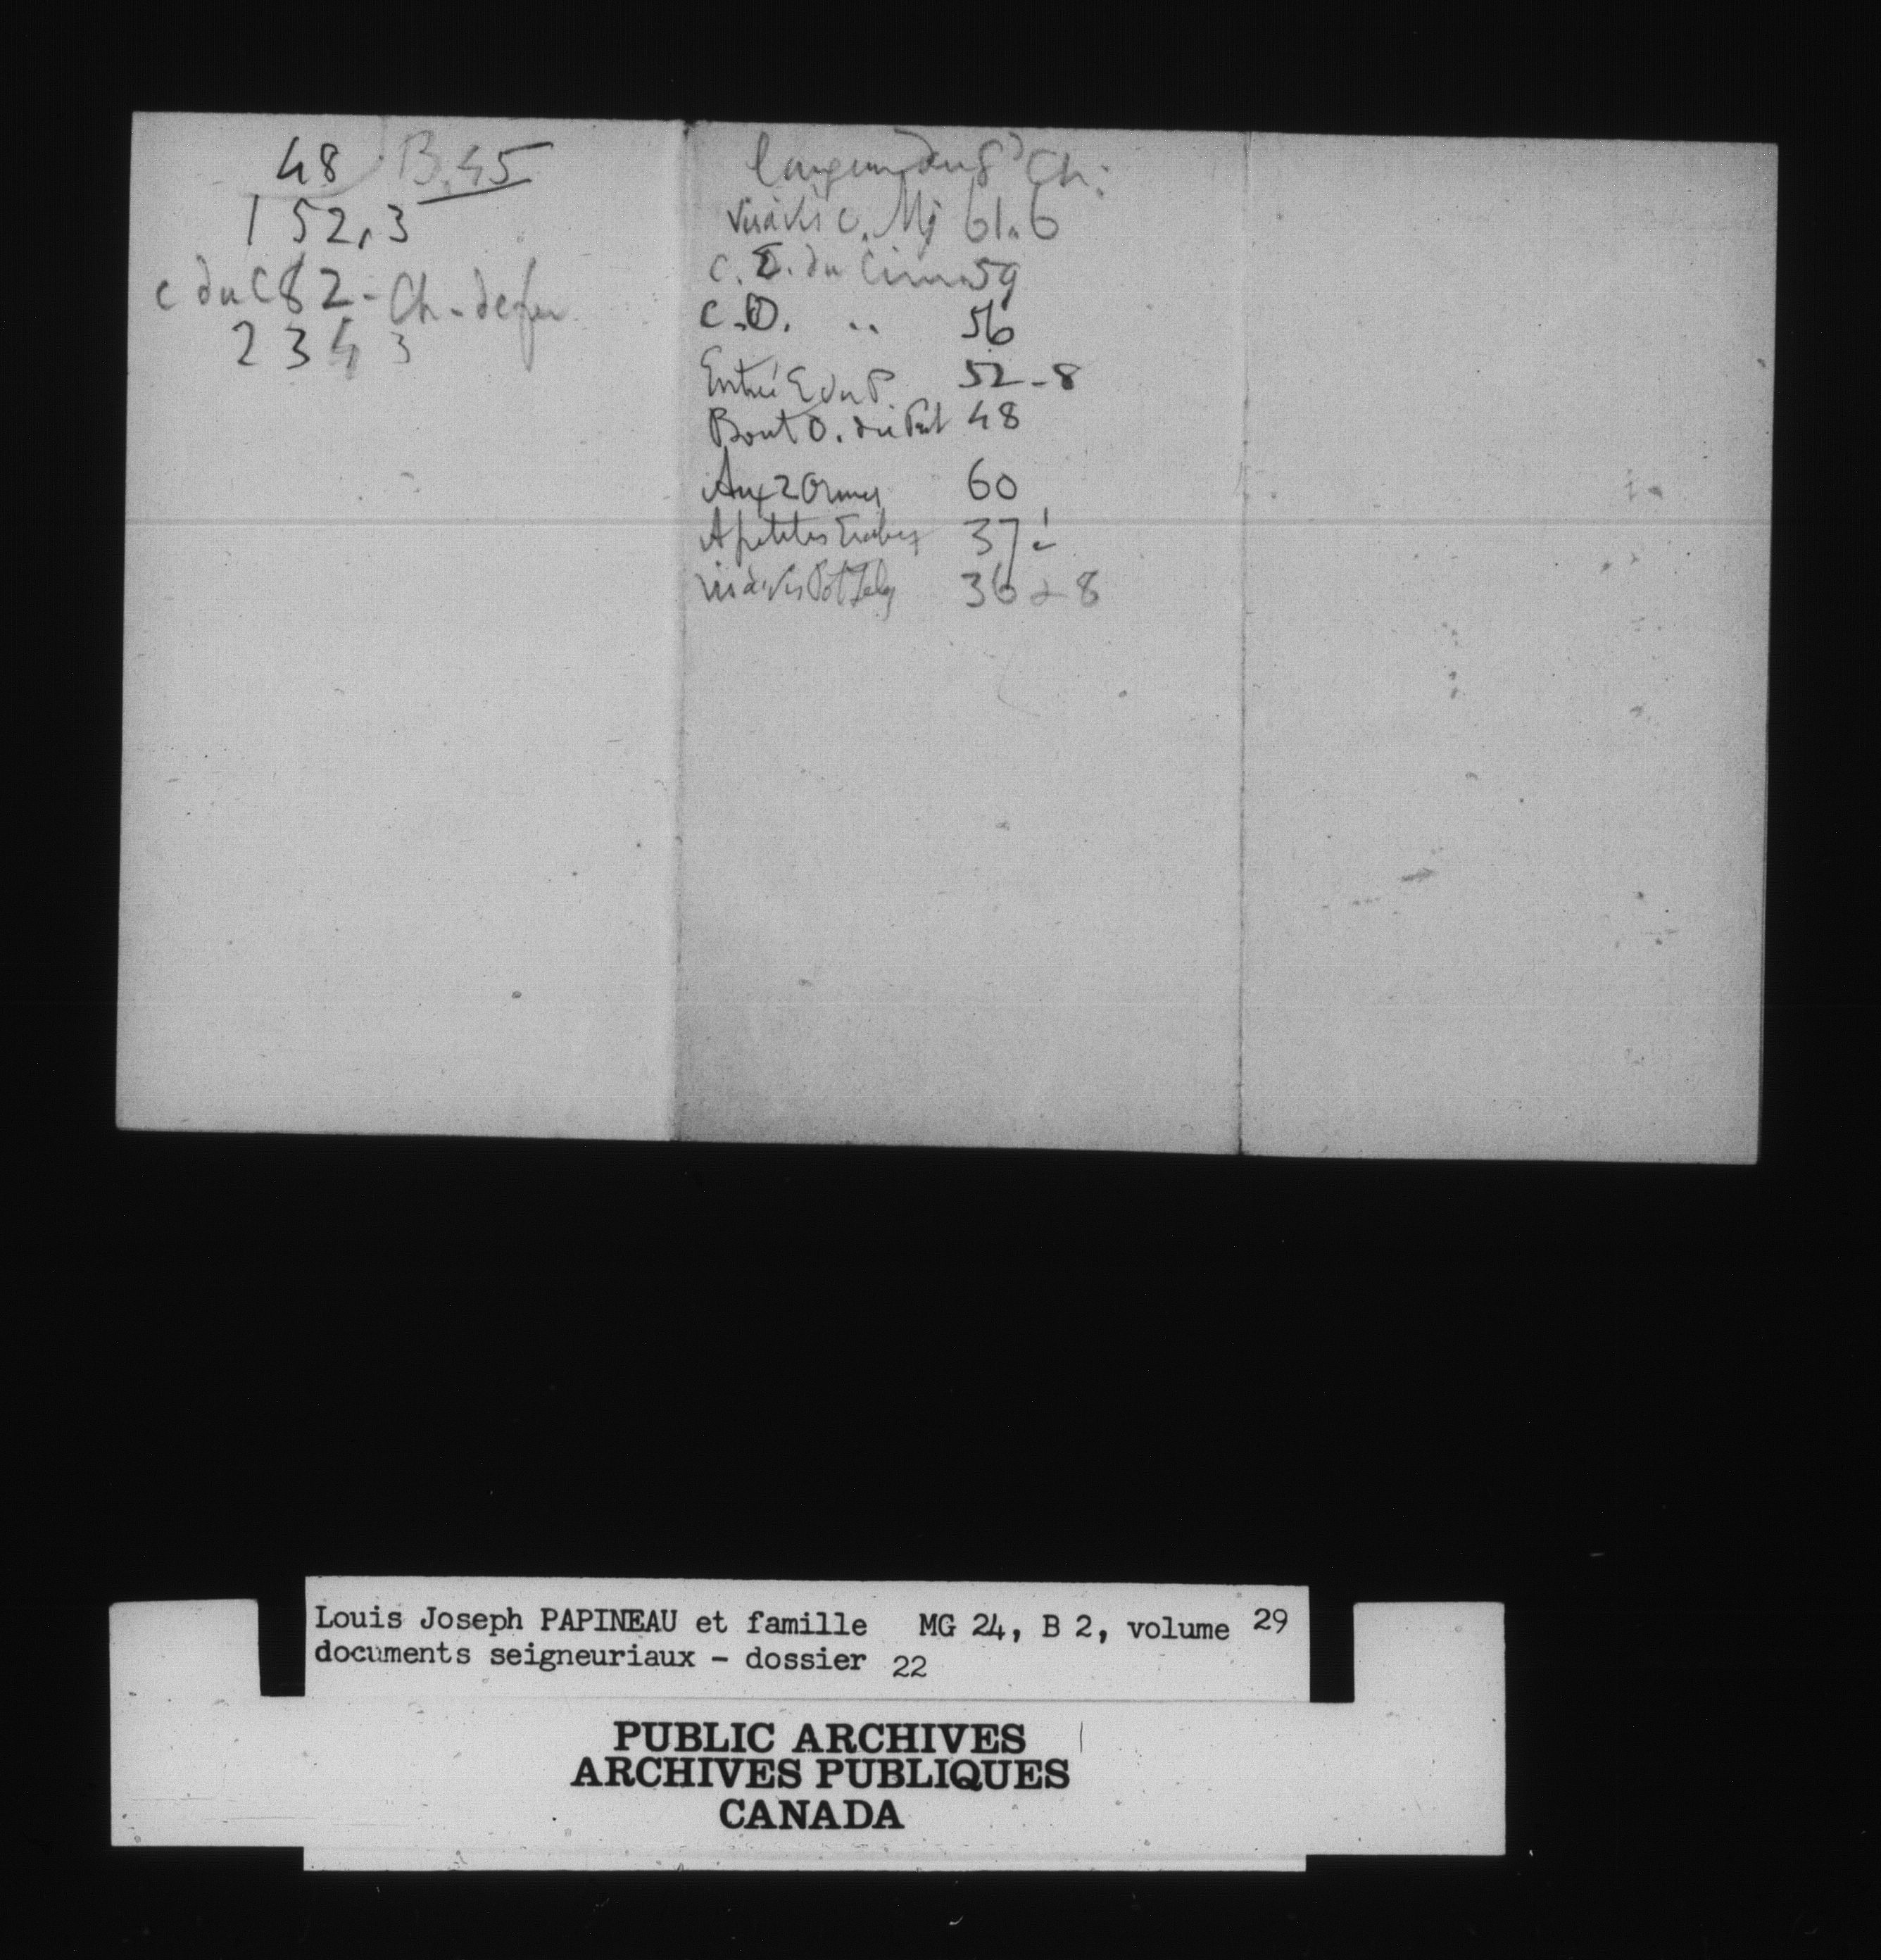 48 B. 45
1 52,3
c du C 82 - Ch. de fer
2 3 4 3
Ch:
vis à vis C. Mj 61.6
C. E. du Cim 59
C. O. " 56
Entrée E du P. 52-8
Bout O. du Pont 48
Aux 2 Ormes 60
A petites 37
vis à vis 36 8
Louis Joseph PAPINEAU et famille MG 24, B 2, volume 29
documents seigneuriaux - dossier 22
PUBLIC ARCHIVES
ARCHIVES PUBLIQUES
CANADA